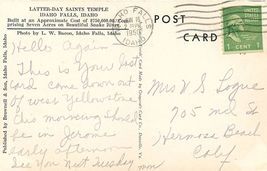 LATTER-DAY SAINTS TEMPLE
IDAHO FALLS, IDAHO
Built at an Approximate Cost of $750,000.00, Comprising Seven Acres on Beautiful Snake River.
Photo by L. W. Bacon, Idaho Falls, Idaho
Hello Again –
This is your last
card come down out
of west Yellowstone
this morning should
be in Jerome
early afternoon
See you next Tuesday
Published by Brownell & Son, Idaho Falls, Idaho
IDAHO FALLS
1950
IDAHO
POST
CARD
1 CENT
Mrs V S Logue
705
Hermosa Beach
Calif